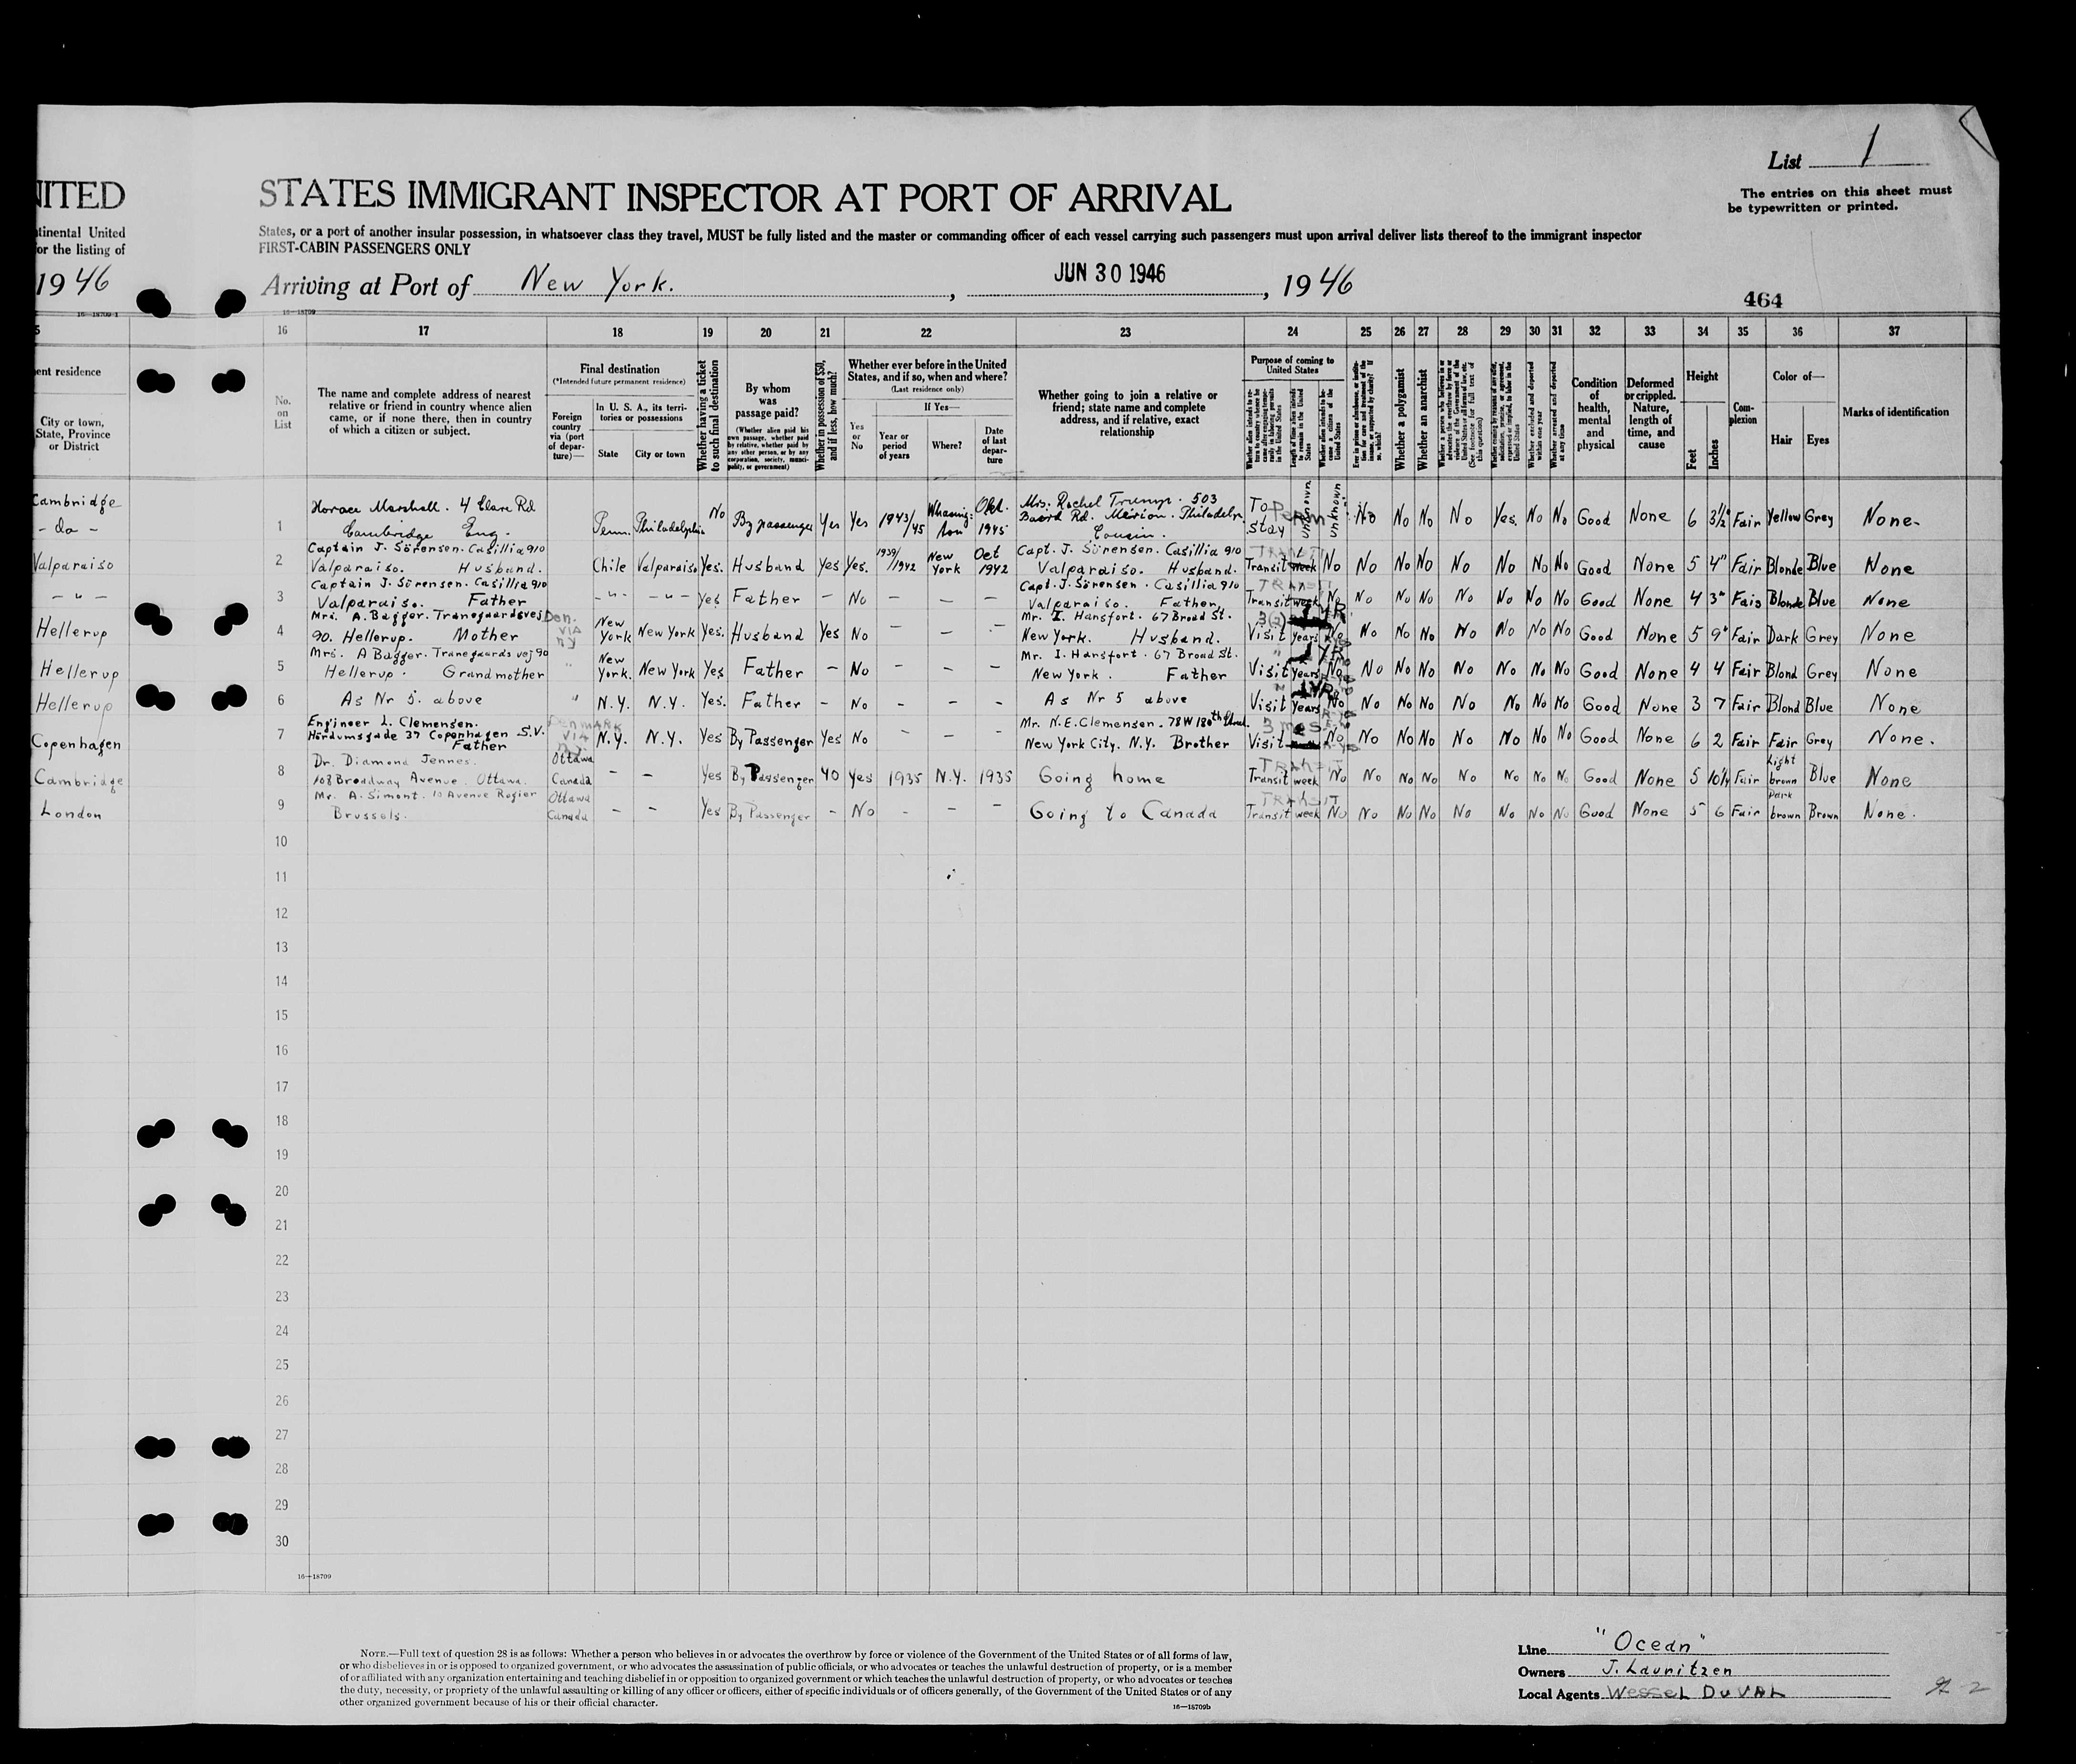 List 1
The entries on this sheet must
be typewritten or printed.
NITED
STATES IMMIGRANT INSPECTOR AT PORT OF ARRIVAL
tinental United
or the listing of
States, or a port of another insular possession, in whatsoever class they travel, MUST be fully listed and the master or commanding officer of each vessel carrying such passengers must upon arrival deliver lists thereof to the immigrant inspector
FIRST-CABIN PASSENGERS ONLY
1946
Arriving at Port of New York. , JUN 30 1946 , 1946
464
16—18709
16 17 18 19 20 21 22 23 24 25 26 27 28 29 30 31 32 33 34 35 36 37
ent residence
City or town,
State, Province
or District
No.
on
List
The name and complete address of nearest
relative or friend in country whence alien
came, or if none there, then in country
of which a citizen or subject.
Final destination
(*Intended future permanent residence)
Foreign
country
via (port
of depar-
ture)—
In U. S. A., its terri-
tories or possessions
State
City or town
Whether having a ticket
to such final destination
By whom
was
passage paid?
(Whether alien paid his
own passage, whether paid
by relative, whether paid by
any other person, or by any
corporation, society, munici-
pality, or government)
Whether in possession of $50,
and if less, how much?
Whether ever before in the United
States, and if so, when and where?
(Last residence only)
Yes
or
No
If Yes—
Year or
period
of years
Where?
Date
of last
depar-
ture
Whether going to join a relative or
friend; state name and complete
address, and if relative, exact
relationship
Purpose of coming to
United States
Whether a polygamist
Whether an anarchist
Condition
of
health,
mental
and
physical
Deformed
or crippled.
Nature,
length of
time, and
cause
Height
Feet
Inches
Com-
plexion
Color of—
Hair
Eyes
Marks of identification
Cambridge
- do -
1 Horace Marshall. 4 Clare Rd
Cambridge Eng.
Penn. Philadelphia No By passenger Yes Yes 1943/45 Okt. 1945
Mrs. Rachel Trump. 503
Baird Rd. Merion. Philadelp.
Cousin.
To stay Perm Unknown Unknown No No No No Yes. No No Good None 6 3½" Fair Yellow Grey None-
Valparaiso
2 Captain J. Sörensen. Casillia 910
Valparaiso. Husband.
Chile Valparaiso Yes. Husband Yes Yes. 1939/1942 New York Oct 1942
Capt. J. Sörensen. Casillia 910
Valparaiso. Husband.
TRANSIT
Transit 1 week No No No No No No No No Good None 5 4" Fair Blonde Blue None
- " -
3 Captain J. Sörensen. Casillia 910
Valparaiso. Father
- " - - " - Yes Father - No - - -
Capt. J. Sörensen. Casillia 910
Valparaiso. Father,
TRANSIT
Transit week No No No No No No No No Good None 4 3" Fair Blonde Blue None
Hellerup
4 Mrs. A. Bagger. Tranegaardsvej
90. Hellerup. Mother
Den. VIA NY New York New York Yes. Husband Yes No - - -
Mr. I. Hansfort. 67 Broad St.
New York. Husband.
3(2) 1 YR
Visit years No No No No No No No No Good None 5 9" Fair Dark Grey None
Hellerup
5 Mrs. A Bagger. Tranegaards vej 90
Hellerup. Grandmother
" New York. New York Yes Father - No - - -
Mr. I. Hansfort. 67 Broad St.
New York. Father
" 1 YR
Visit years No No No No No No No No Good None 4 4 Fair Blond Grey None
Hellerup
6 As Nr 5. above
" N.Y. N.Y. Yes. Father - No - - -
As Nr 5 above
" 1 YR
Visit years No No No No No No No No Good None 3 7 Fair Blond Blue None
Copenhagen
7 Engineer L. Clemensen.
Hördumsgade 37 Copenhagen S.V.
Father
DENMARK VIA NY. N.Y. N.Y. Yes By Passenger Yes No - - -
Mr. N.E. Clemensen. 78 W 180th Street.
New York City. N.Y. Brother
3 mos
Visit No No No No No No No Good None 6 2 Fair Fair Grey None.
Cambridge
8 Dr. Diamond Jennes.
108 Broadway Avenue. Ottawa.
Ottawa Canada - - Yes By Passenger 40 Yes 1935 N.Y. 1935
Going home
TRANSIT
Transit week No No No No No No No No Good None 5 10½ Fair Light brown Blue None
London
9 Mr. A. Simont. 10 Avenue Rogier
Brussels.
Ottawa Canada - - Yes By Passenger - No - - -
Going to Canada
TRANSIT
Transit week No No No No No No No No Good None 5 6 Fair Dark brown Brown None.
10
11
12
13
14
15
16
17
18
19
20
21
22
23
24
25
26
27
28
29
30
16—18709
NOTE.—Full text of question 28 is as follows: Whether a person who believes in or advocates the overthrow by force or violence of the Government of the United States or of all forms of law,
or who disbelieves in or is opposed to organized government, or who advocates the assassination of public officials, or who advocates or teaches the unlawful destruction of property, or is a member
of or affiliated with any organization entertaining and teaching disbelief in or opposition to organized government or which teaches the unlawful destruction of property, or who advocates or teaches
the duty, necessity, or propriety of the unlawful assaulting or killing of any officer or officers, either of specific individuals or of officers generally, of the Government of the United States or of any
other organized government because of his or their official character.
16—18709b
Line "Ocean"
Owners J. Lauritzen
Local Agents Wessel DUVAL